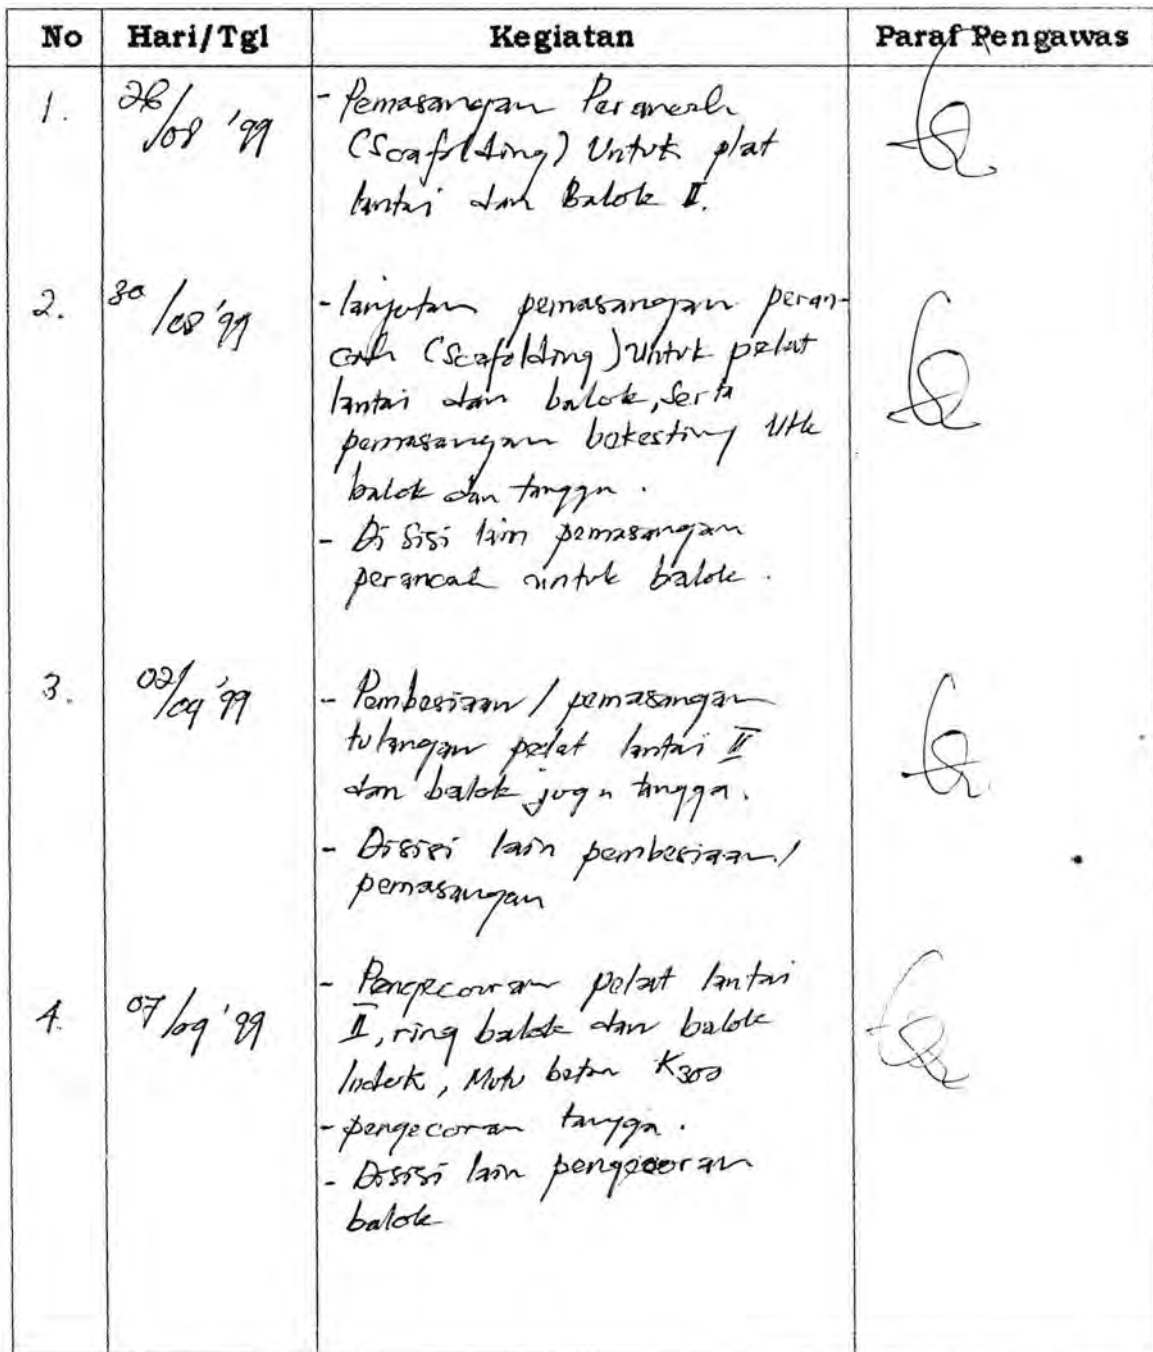 No Hari/Tgl Kegiatan Paraf Pengawas
1. 26/08 '99 - Pemasangan Perancah
(Scafolding) Untuk plat
lantai dan Balok II.
2. 30/08 '99 - lanjutan pemasangan peran-
cah (Scafolding) Untuk pelat
lantai dan balok, Serta
pemasangan bekesting Utk
balok dan tangga.
- Di Sisi lain pemasangan
perancah untuk balok.
3. 02/09 '99 - Pembesiaan / pemasangan
tulangan pelat lantai II
dan balok juga tangga.
- Disisi lain pembesiaan/
pemasangan
4. 07/09 '99 - Pengecoran pelat lantai
II, ring balok dan balok
Induk, Mutu beton K300
- pengecoran tangga.
- Disisi lain pengecoran
balok